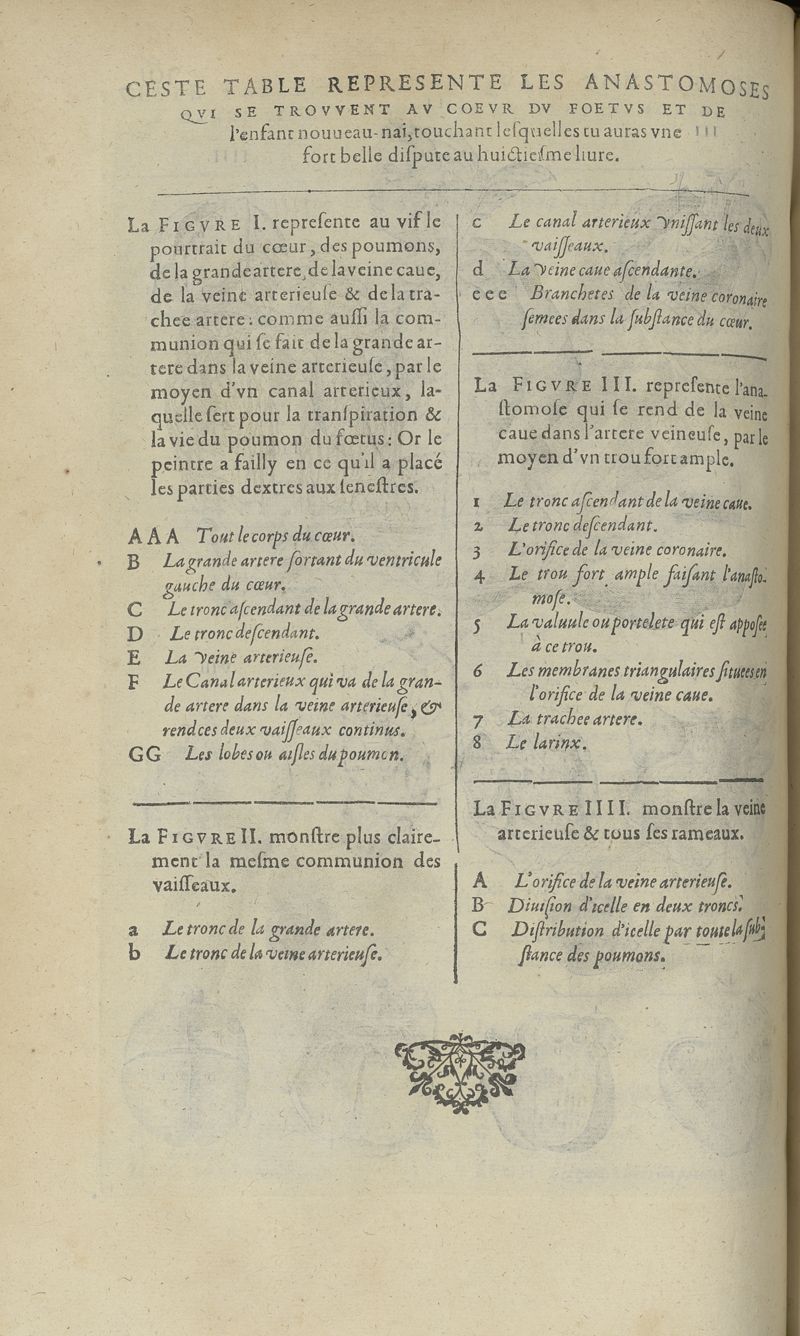 CESTE TABLE REPRESENTE LES ANASTOMOSES
QVI SE TROVVENT AV COEVR DV FOETVS ET DE
l'enfant nouueau-nai, touchant leſquelles tu auras vne
fort belle diſpute au huictieſme liure.
La FIGVRE I. repreſente au vif le
pourtrait du cœur, des poumons,
de la grande artere, de la veine caue,
de la veine arterieuſe & de la tra-
chee artere: comme auſſi la com-
munion qui ſe fait de la grande ar-
tere dans la veine arterieuſe, par le
moyen d'vn canal arterieux, la-
quelle ſert pour la tranſpiration &
la vie du poumon du fœtus: Or le
peintre a failly en ce qu'il a placé
les parties dextres aux feneſtres.
A A A Tout le corps du cœur.
B La grande artere ſortant du ventricule
gauche du cœur.
C Le tronc aſcendant de la grande artere.
D Le tronc deſcendant.
E La Veine arterieuſe.
F Le Canal arterieux qui va de la gran-
de artere dans la veine arterieuſe, &
rend ces deux vaiſſeaux continus.
GG Les lobes ou aiſles du poumon.
La FIGVRE II. monſtre plus claire-
ment la meſme communion des
vaiſſeaux.
a Le tronc de la grande artere.
b Le tronc de la veine arterieuſe.
c Le canal arterieux Vniſſant les deux
vaiſſeaux.
d La Veine caue aſcendante.
e e e Branchetes de la veine coronaire
ſemees dans la ſubſtance du cœur.
La FIGVRE III. repreſente l'ana-
ſtomoſe qui ſe rend de la veine
caue dans l'artere veineuſe, par le
moyen d'vn trou fort ample.
1 Le tronc aſcendant de la veine caue.
2 Le tronc deſcendant.
3 L'orifice de la veine coronaire.
4 Le trou fort ample faiſant l'anaſto-
moſe.
5 La valuule ou portelete qui eſt appoſee
à ce trou.
6 Les membranes triangulaires ſituees en
l'orifice de la veine caue.
7 La trachee artere.
8 Le larinx.
La FIGVRE IIII. monſtre la veine
arterieuſe & tous ſes rameaux.
A L'orifice de la veine arterieuſe.
B Diuiſion d'icelle en deux troncs.
C Diſtribution d'icelle par toute la ſub-
ſtance des poumons.